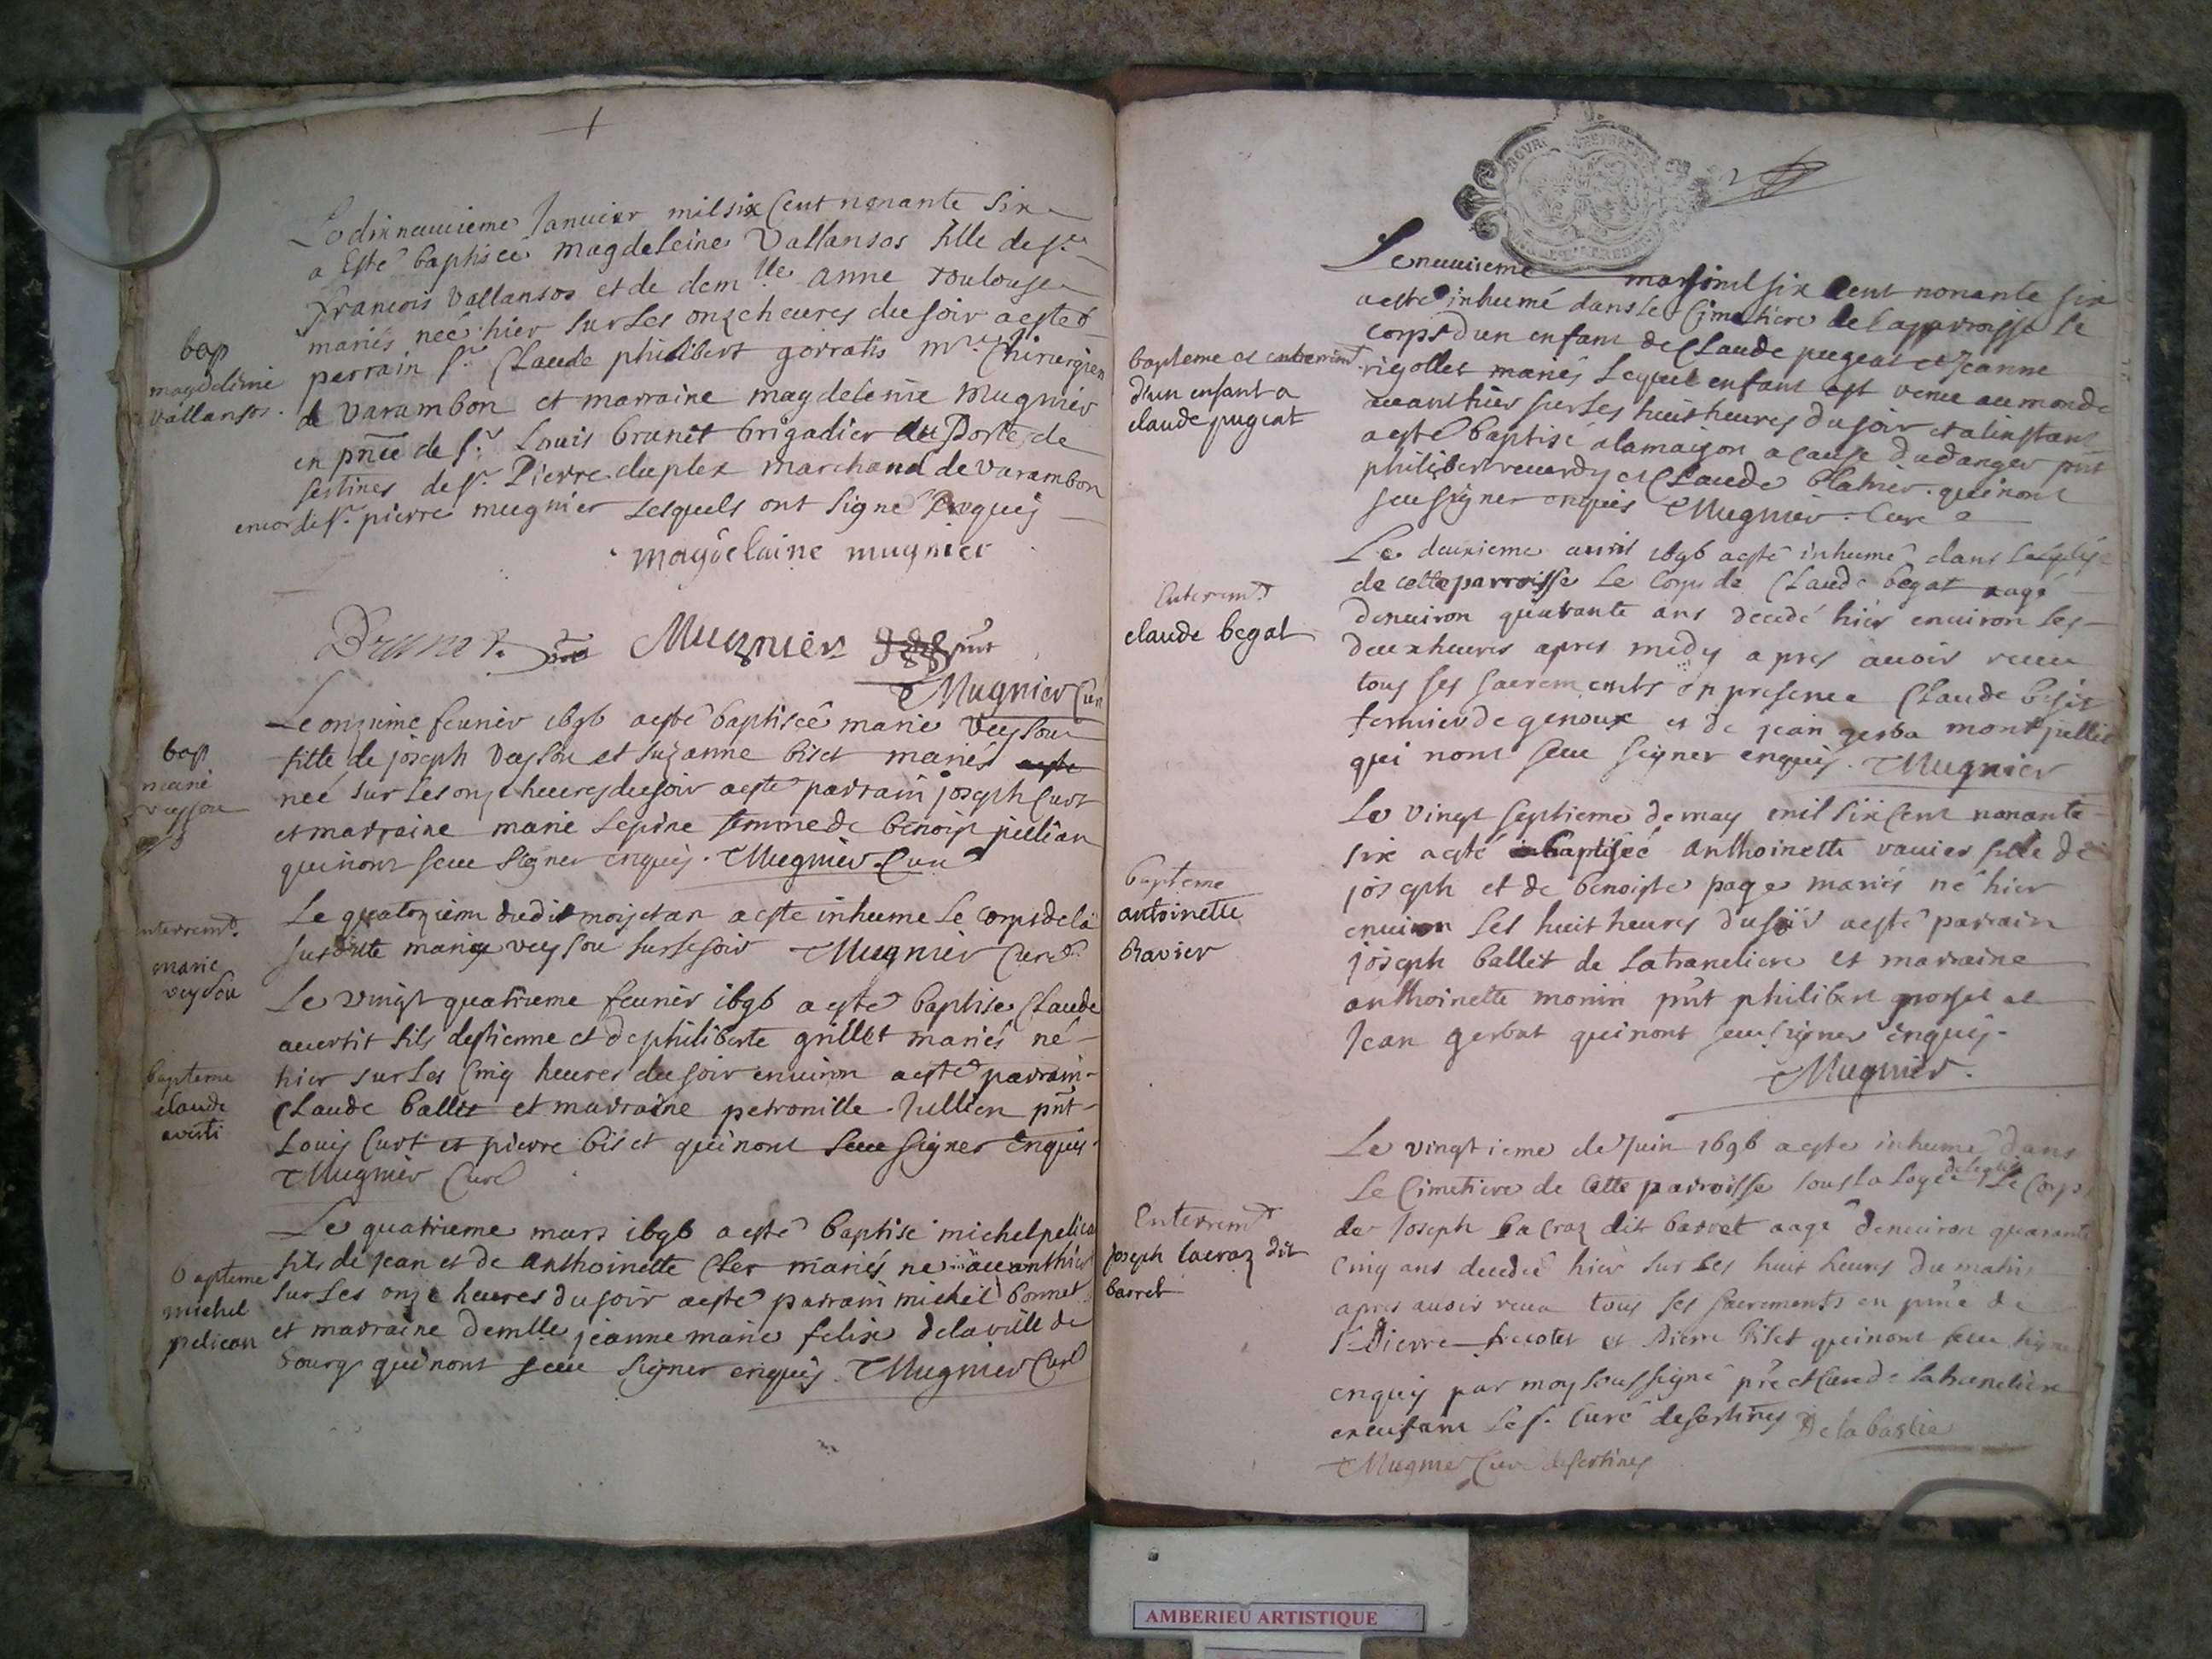 Le dixneuuieme Januier mil six Cent nonante six
a Esté baptiseé magdeleine Vallansos fille de sr.
françois Vallansos et de demlle anne toulouse
mariés neé hier sur les onze heures du soir a esté
bap
magdeleine
vallansos.
perrain sr. Claude philibert gorratis mre. Chirurgien
de Varambon et marraine magdeleine Mugnier
en pnce de sr. Louis brunet brigadier au Poste de
sertines de sr. Pierre duplex marchand de varambon
encor de sr. pierre mugnier Lesquels ont signé enquis
magdelaine mugnier
Brunet. Mugnier pnt
Mugnier Curé
bap
marie
veyssou
Le onzieme feurier 1696 a esté baptiseé marie Veyssou
fille de joseph Veyssou et suzanne biset mariés
neé sur les onze heures du soir a esté parrain joseph Curt
et marraine marie Lepine femme de benoist jullian
qui nont sceu signer enquis. Mugnier Curé
Enterremt.
marie
veyssou
Le quatorzieme dudit mois et an a esté inhume Le corps de la
susdite marie veyssou sur le soir Mugnier Curé
Le vingt quatrieme feurier 1696 a esté baptisé Claude
auertit fils destienne et de philiberte grillet mariés né
bapteme
claude
averti
hier sur les Cinq heures du soir enuiron a esté parrain
Claude ballet et marraine petronille Jullien pnt
Louis Curt et pierre biset qui nont sceu signer enquis.
Mugnier Curé
bapteme
michel
pelican
Le quatrieme mars 1696 a esté baptisé michel pelican
fils de jean et de anthoinette Cler mariés né auanthier
sur les onze heures du soir a esté parrain michel bonnet
et marraine demlle jeanne marie felix de la ville de
bourg qui nont sceu signer enquis. Mugnier Curé
2
Le neuuieme mars mil six cent nonante six
a esté inhumé dans le Cimetiere de la parroisse le
corps d'un enfant de Claude pugeat et Jeanne
bapteme et enterremt.
d'un enfant a
claude pugeat
rigollet mariés Lequel enfant est venu au monde
auanthier sur les huit heures du soir et a linstant
a esté baptisé a la maison a cause du danger pnt
philibert reuerdy et Claude blatrier qui nont
sceu signer enquis Mugnier. Curé
Enterremt
claude begat
Le deuxieme auril 1696 a esté inhumé dans Leglise
de cette parroisse Le Corps de Claude begat aagé
denuiron quarante ans decedé hier enuiron les
deux heures apres midy apres auoir receu
tous ses sacrements en presence Claude biset
fermier de genoux et de jean gerba montpellier
qui nont sceu signer enquis. Mugnier
bapteme
antoinette
Ravier
Le vingt septieme de may mil six Cent nonante
six a esté baptiseé anthoinette rauier fille de
joseph et de benoiste page mariés né hier
enuiron les huit heures du soir a esté parrain
joseph ballet de Latranclière et marraine
anthoinette monin pnt philibert grosset et
Jean gerbat qui nont sceu signer enquis.
Mugnier.
Enterremt
joseph lacraz dit
barret
Le vingtieme de Juin 1696 a esté inhumé dans
Le Cimetiere de cette parroisse sous la Loge de leglise Le Corps
de Joseph La Craz dit barret aagé denuiron quarante
cinq ans decedé hier sur les huit heures du matin
apres auoir receu tous ses sacrements en pnce de
Pierre et Pierre biset qui nont sceu signer
enquis par moy soussigné pre et Curé de latrancliere
en lieu sr. Curé de sertines Delabastie
Mugnier Curé de sertines
AMBERIEU ARTISTIQUE